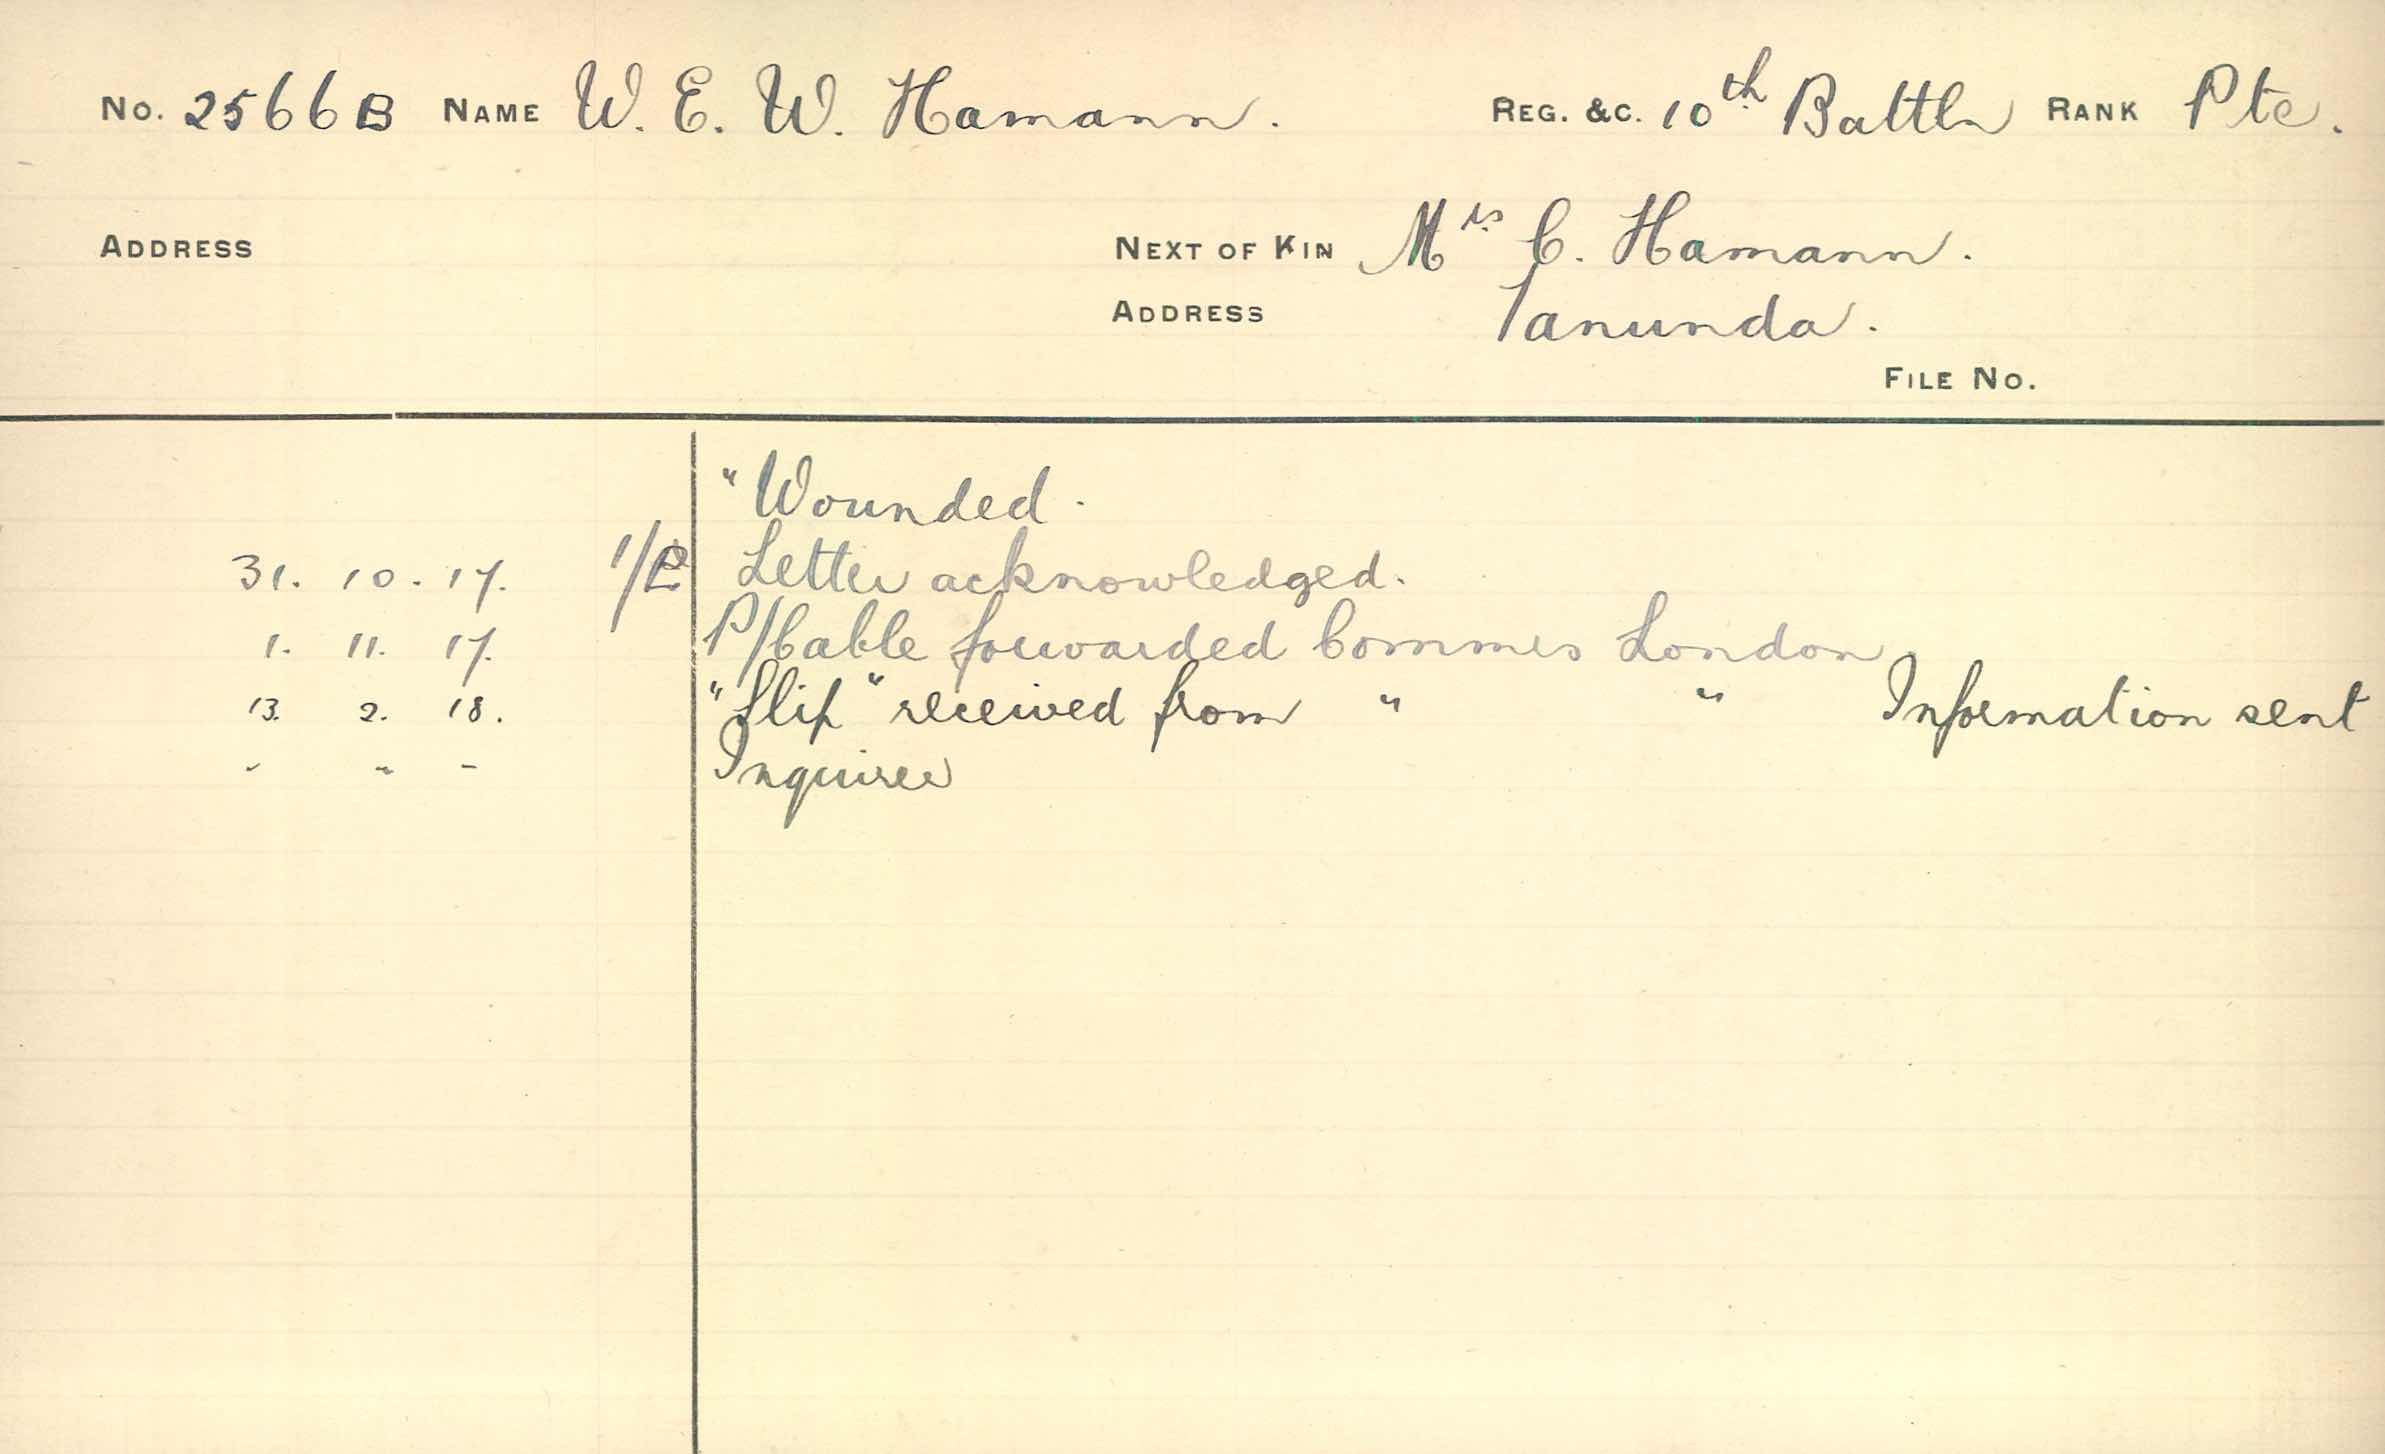 No. 2566B NAME W. E. W. Hamann. REG. &C. 10th Battln RANK Pte.
ADDRESS NEXT OF KIN Mrs C. Hamann.
ADDRESS Tanunda.
FILE No.
"Wounded.
31. 10. 17. Letter acknowledged.
1. 11. 17. P/Cable forwarded Commrs London
13. 2. 18. "Slip" received from " " Information sent
" " " Inquirer